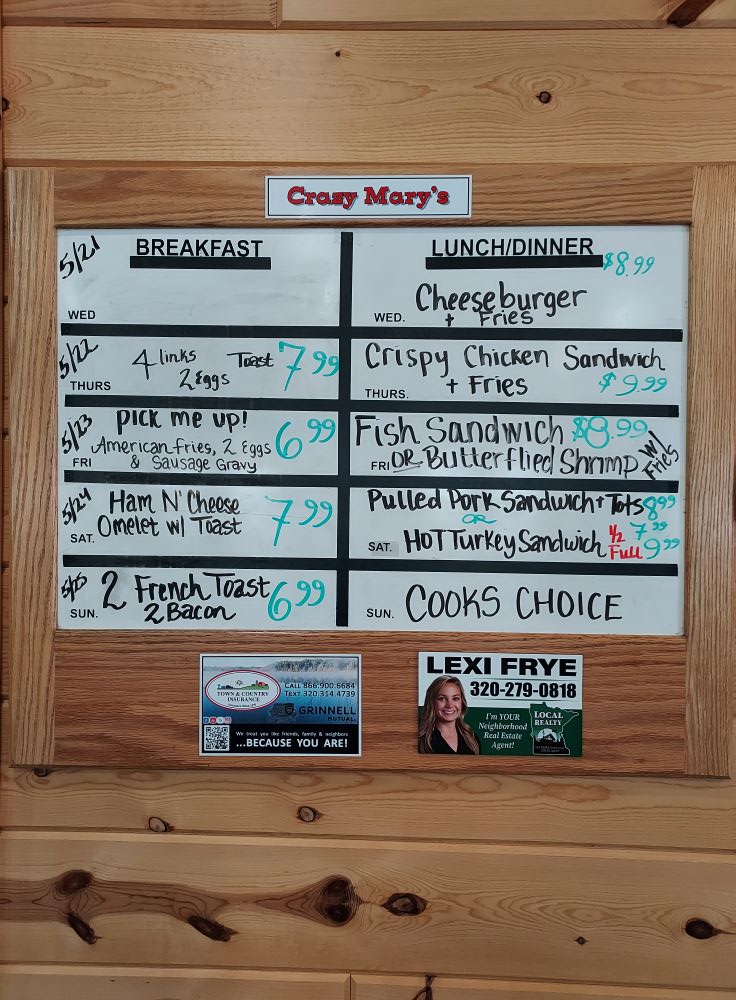 Crazy Mary's
BREAKFAST
5/21
WED
5/22
4 links Toast 7 99
2 Eggs
THURS
5/23
PICK me up! 6 99
American fries, 2 Eggs
& Sausage Gravy
FRI
5/24
Ham N' Cheese 7 99
Omelet w/ Toast
SAT.
5/25
2 French Toast 6 99
2 Bacon
SUN.
LUNCH/DINNER
$8.99
Cheeseburger
+ Fries
WED.
Crispy Chicken Sandwich
+ Fries $9.99
THURS.
Fish Sandwich $8.99
FRI OR Butterflied Shrimp w/ Fries
Pulled Pork Sandwich + Tots 8 99
OR
SAT. HOT Turkey Sandwich 1/2 7 99
Full 9 99
SUN. COOKS CHOICE
TOWN & COUNTRY
INSURANCE
CALL 866.900.6684
TEXT 320.314.4739
GRINNELL
MUTUAL
We treat you like friends, family & neighbors
...BECAUSE YOU ARE!
LEXI FRYE
320-279-0818
I'm YOUR
Neighborhood
Real Estate
Agent!
LOCAL
REALTY